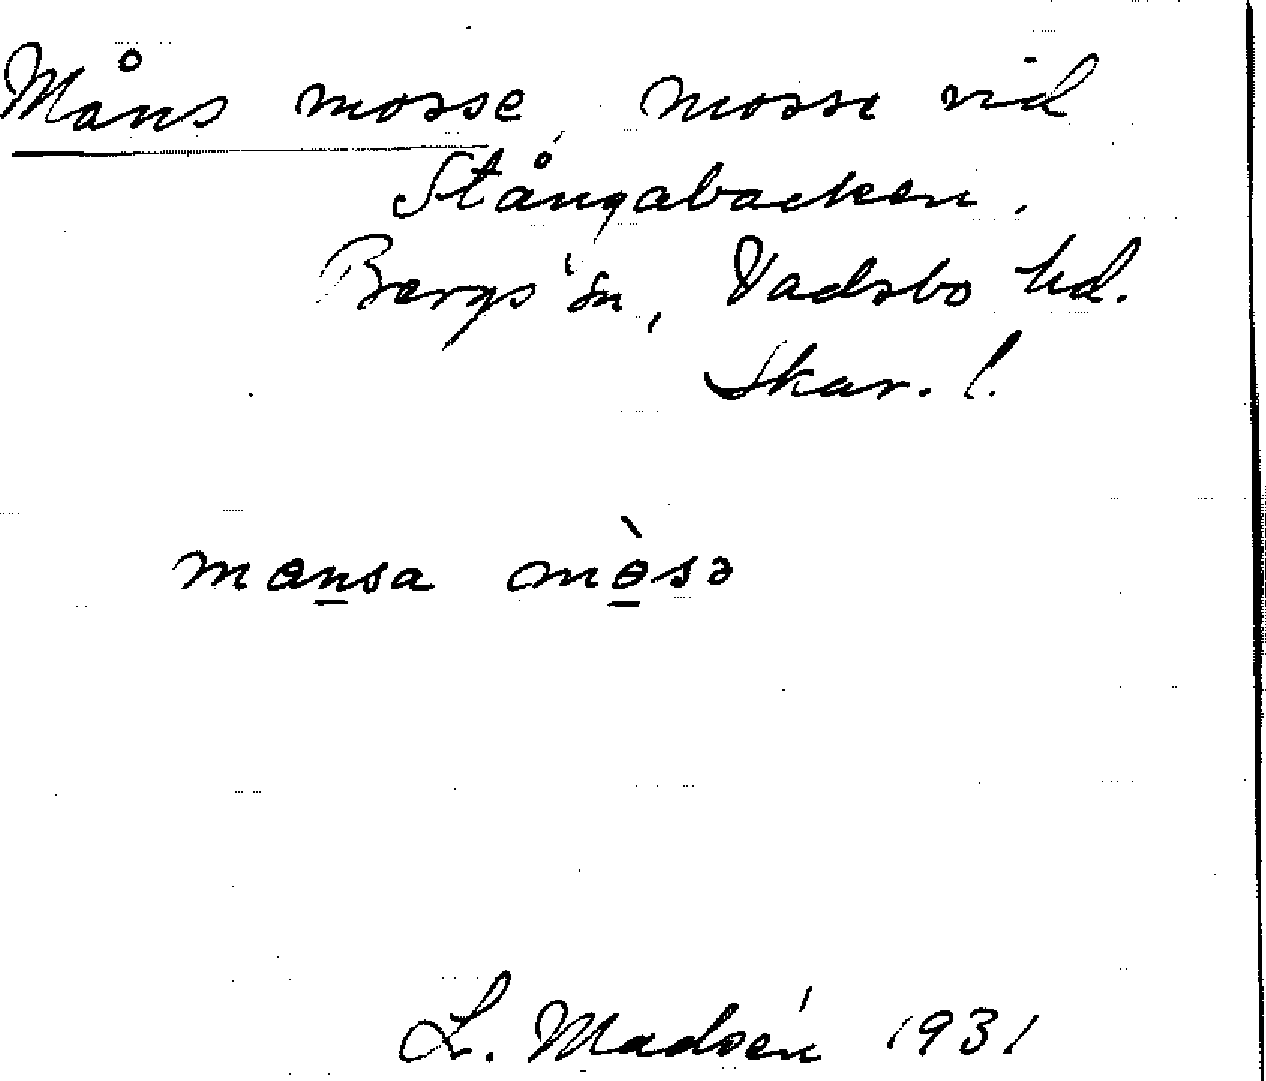 Måns mosse, mosse vid
Stångabacken.
Bergs sn, Vadsbo hd.
Skar. l.
mansa mòsə
L. Madsén 1931